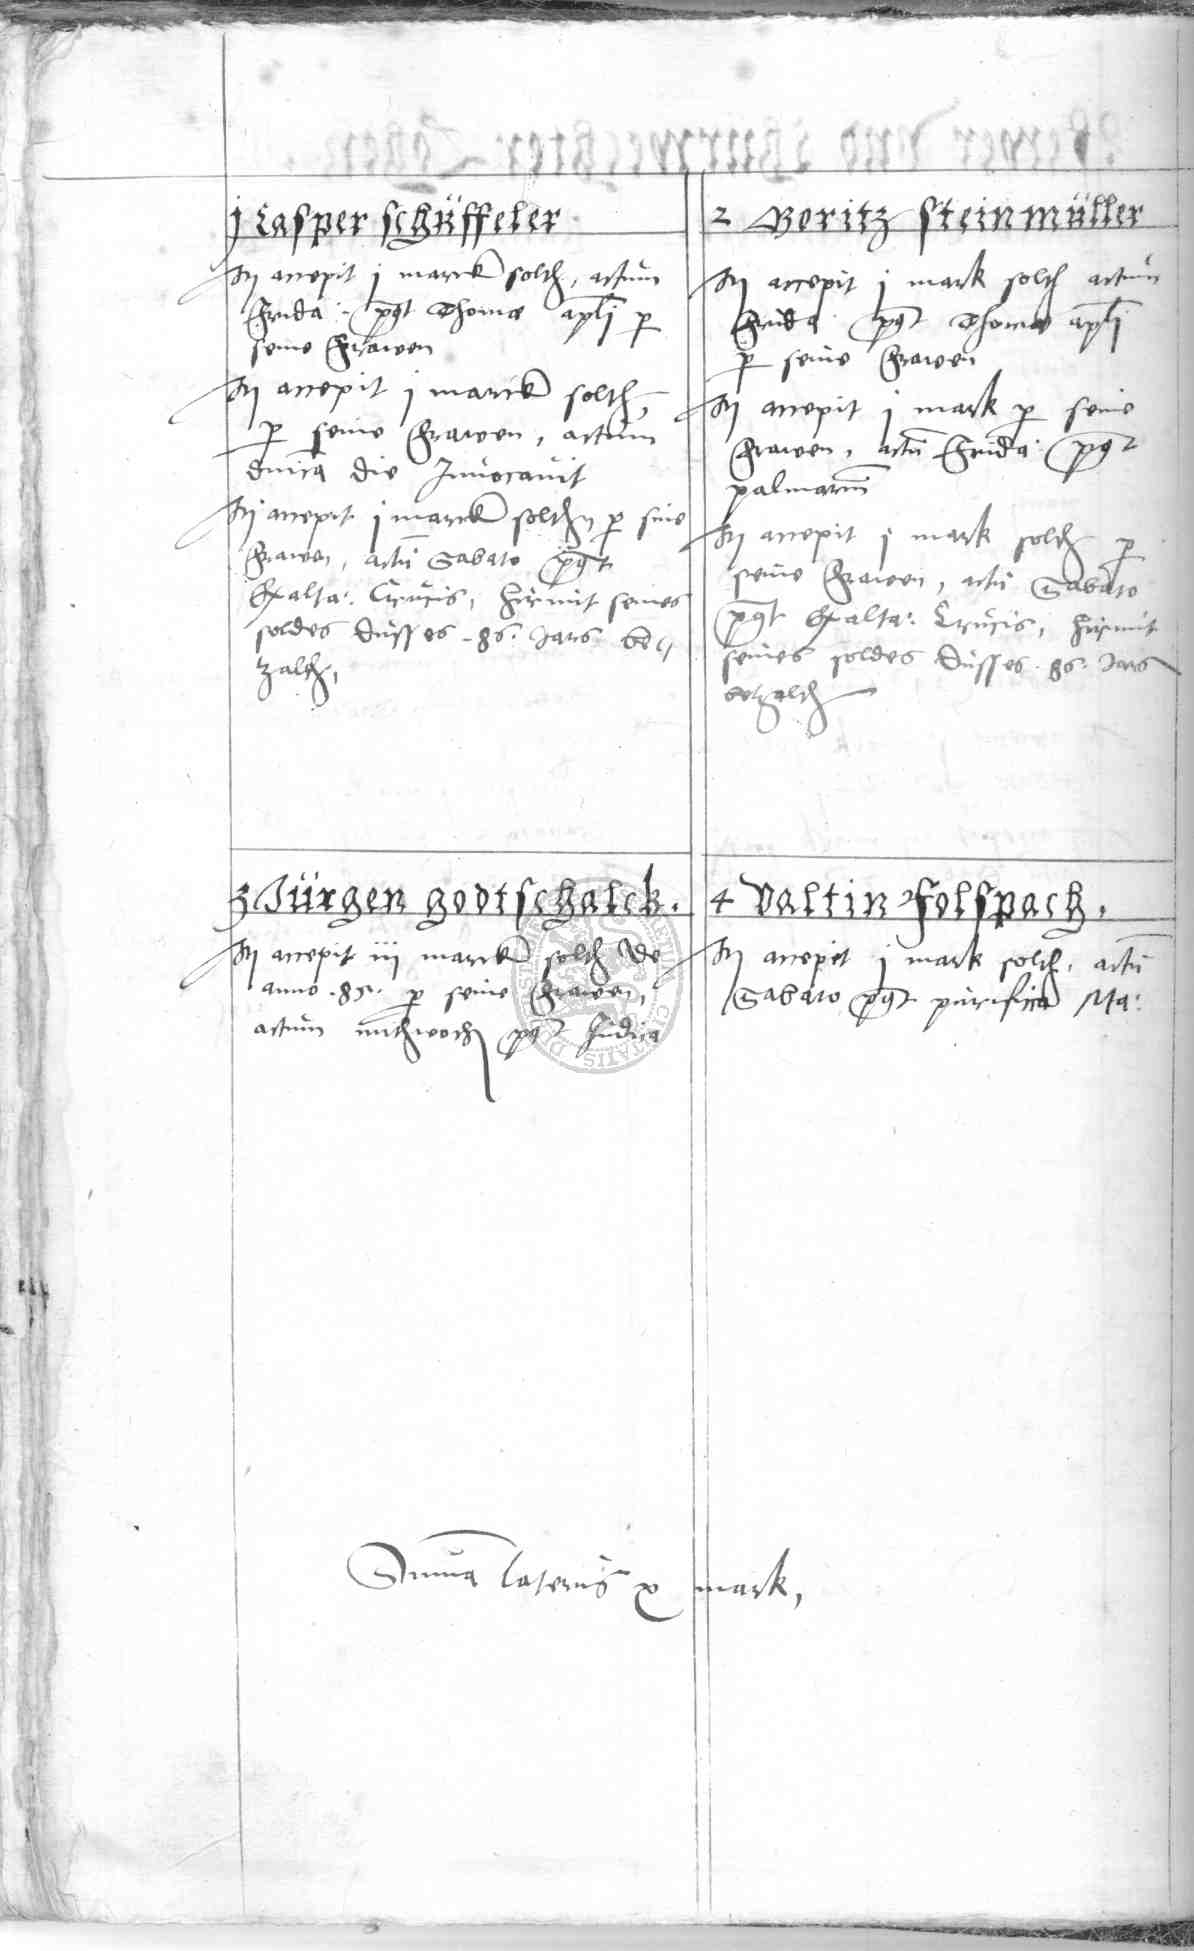 j Casper schüffeler
Itꝫ accepit j marck soldt, actum
Frida: post Thome apli per
seine Frawen
Itꝫ accepit j marck soldt,
per seine Frawen, actum
dnica die Invocavit
Itꝫ accepit j marck soldt, per sine
Frawen, actu Sabato post
Exalta: Crucis, hirmit seines
soldes düsses .86. Jars be„
zaldt,
2 Moritz steinmüller
Itꝫ accepit j mark soldt actum
Frida post Thome apli
per seine Frawen
Itꝫ accepit j mark per seine
Frawen, actu Frida: post
palmarum
Itꝫ accepit j mark soldt per
seine Frawen, actu Sabato
post Exalta: Crucis, hirmit
seines soldes düsses .86. Jars
betzaldt
3 Jürgen godtschalck.
Itꝫ accepit iij marck soldt de
anno .85. per seine Frawen,
actum mithwoch post Judica
4 Valtin Folspach,
Itꝫ accepit j mark soldt, actu
Sabato post purifica Ma:
Suma lateris x mark,